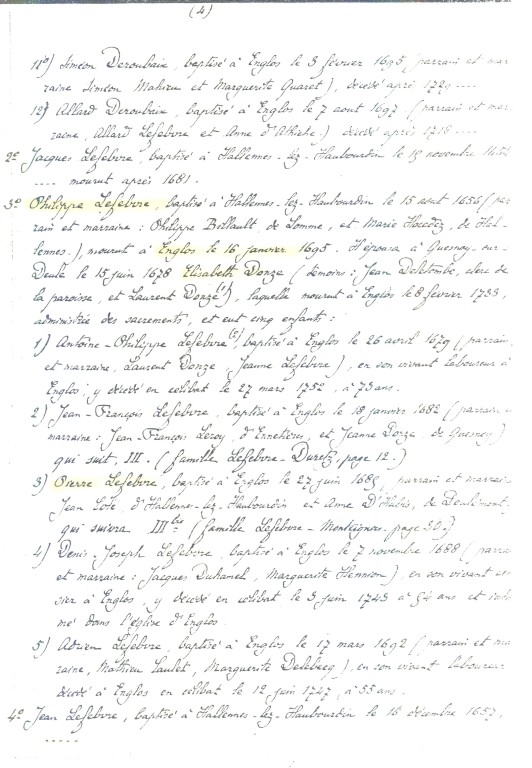 (4)
11º) Siméon Deroubaix, baptisé à Englos le 3 février 1695 (parrain et mar
raine Siméon Mahieu et Marguerite Quaret), décédé après 1729 ....
12) Allard Deroubaix, baptisé à Englos le 7 aout 1697 (parrain et mar
raine, Allard Lefebvre et Anne d'Athiche.) décédé après 1718 ....
2º Jacques Lefebvre, baptisé à Hallennes-lez-Haubourdin le 18 novembre
.... mourut après 1681.
3º Philippe Lefebvre, baptisé à Hallennes-lez-Haubourdin le 15 aout 1656 (par
rain et marraine: Philippe Billault, de Lomme, et Marie Hocedez, de Hal-
lennes.), mourut à Englos le 16 janvier 1695. Il épousa à Quesnoy-sur-
Deule le 15 juin 1678 Elisabeth Donze (témoins: Jean Delétombe, clerc de
la paroisse, et Laurent Donzé (1)), laquelle mourut à Englos le 8 février 1733,
administrée des sacrements, et eut cinq enfants:
1) Antoine-Philippe Lefebvre (2), baptisé à Englos le 26 avril 1679 (parrain
et marraine, Laurent Donze, Jeanne Lefebvre), en son vivant laboureur à
Englos; y décédé en célibat le 27 mars 1752, à 73 ans.
2) Jean-François Lefebvre, baptisé à Englos le 18 janvier 1682 (parrain
marraine: Jean-François Leroy, d'Ennetières, et Jeanne Donze, de Quesnoy)
qui suit, III. (famille Lefebvre-Duretz, page 12.)
3) Pierre Lefebvre, baptisé à Englos le 27 juin 1685, parrain et marrai
Jean Cole, d'Hallennes-lez-Haubourdin et Anne D'Habis, de Deulémont,
qui suivra III bis (famille Lefebvre-Montaignes. page 30.)
4) Denis-Joseph Lefebvre, baptisé à Englos le 7 novembre 1688 (parra
et marraine: Jacques Duhamel, Marguerite Hennion), en son vivant
sier à Englos, y décédé en célibat le 3 juin 1743 à 54 ans et inhu
mé dans l'église d'Englos.
5) Adrien Lefebvre, baptisé à Englos le 17 mars 1692 (parrain et ma
raine, Mathieu Saulet, Marguerite Delebecq), en son vivant laboureur
décédé à Englos en célibat le 12 juin 1747, à 55 ans.
4º Jean Lefebvre, baptisé à Hallennes-lez-Haubourdin le 15 décembre 1657,
.....